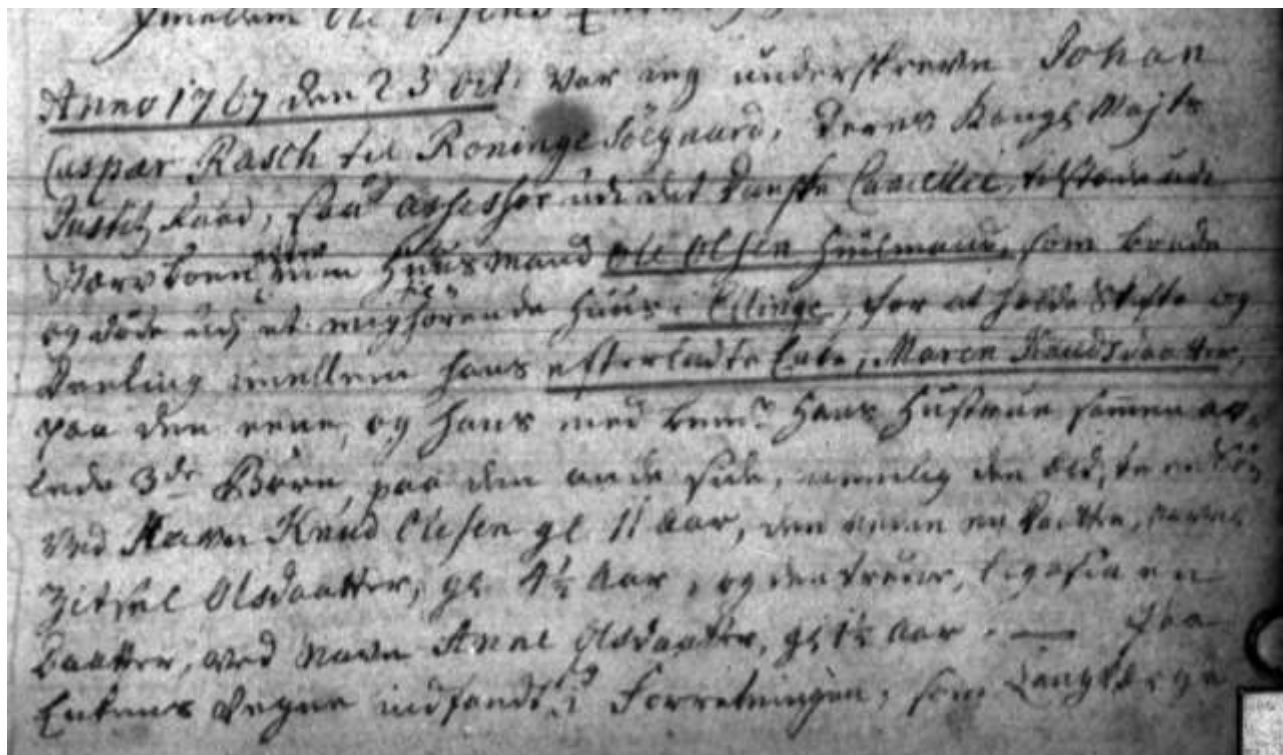 imellem Ole Olsens
Anno 1767 den 23 Oct: var ieg underskrevne Johan
Caspar Rasch til Røninge Søegaard, Deres Kongl Mayts
Justitz Raad, saa og assessor udi det Danske Cancellie, tilstæde udi
Stervboen efter min Huusmand Ole Olsen Huulmand, som boede
og døde udi et mig tilhørende Huus i Ellinge, for at holde Skifte og
Deeling imellem hans efterladte Enke, Maren Knudsdaatter,
paa den eene, og hans med bemte hans Hustrue sammen av-
lede 3de Børn, paa den anden side, nemlig den Eldste en Søn
ved Navn Knud Olesen gl 11 Aar, den anden en Daatter, navnl
Zitsel Olsdaatter, gl. 4½ Aar, og den tredie, ligesaa en
Daatter, ved Navn Anne Olsdaatter, gl 1½ Aar. — Paa
Enkens Vegne indfandt sig i Forretningen, som Laugværge